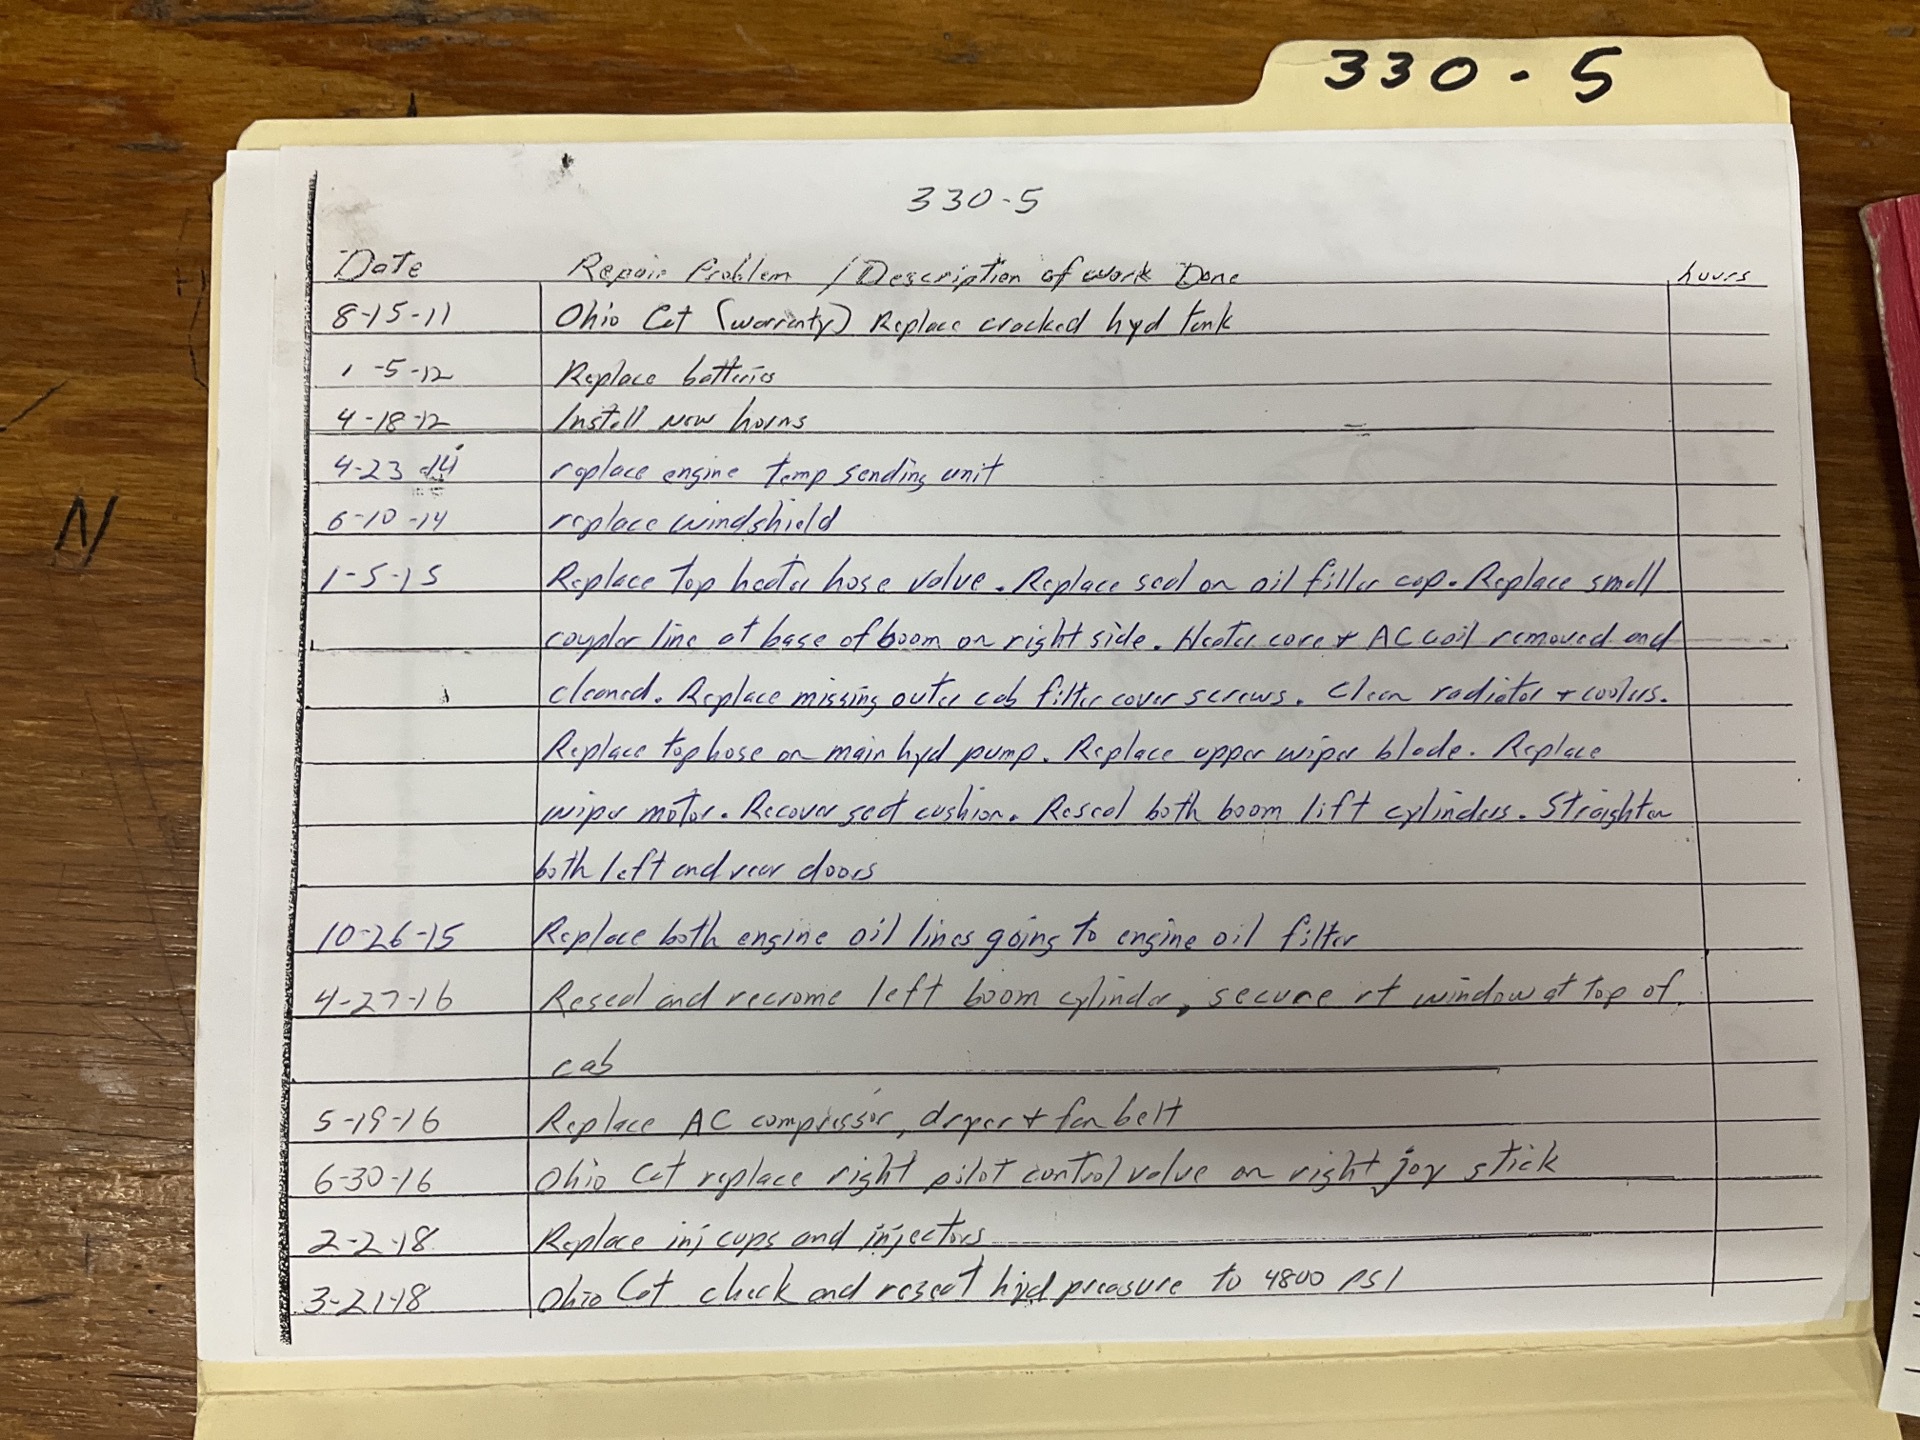 330-5
330-5
Date Repair Problem / Description of work Done hours
8-15-11 Ohio Cat (warrenty) Replace cracked hyd tank
1-5-12 Replace batteries
4-18-12 Install new horns
4-23-14 replace engine temp sending unit
6-10-14 replace windshield
1-5-15 Replace top heater hose valve. Replace seal on oil filler cap. Replace small
coupler line at base of boom on right side. Heater core + AC coil removed and
cleaned. Replace missing outer cab filter cover screws. Clean radiator + coolers.
Replace top hose on main hyd pump. Replace upper wiper blade. Replace
wiper motor. Recover seat cushion. Reseal both boom lift cylinders. Straighten
both left and rear doors
10-26-15 Replace both engine oil lines going to engine oil filter
4-27-16 Reseal and recrome left boom cylinder, secure rt window at top of
cab
5-19-16 Replace AC compressor, dryer + fan belt
6-30-16 Ohio Cat replace right pilot control valve on right joy stick
2-2-18 Replace inj cups and injectors
3-21-18 Ohio Cat check and reseat hyd preasure to 4800 PSI
N